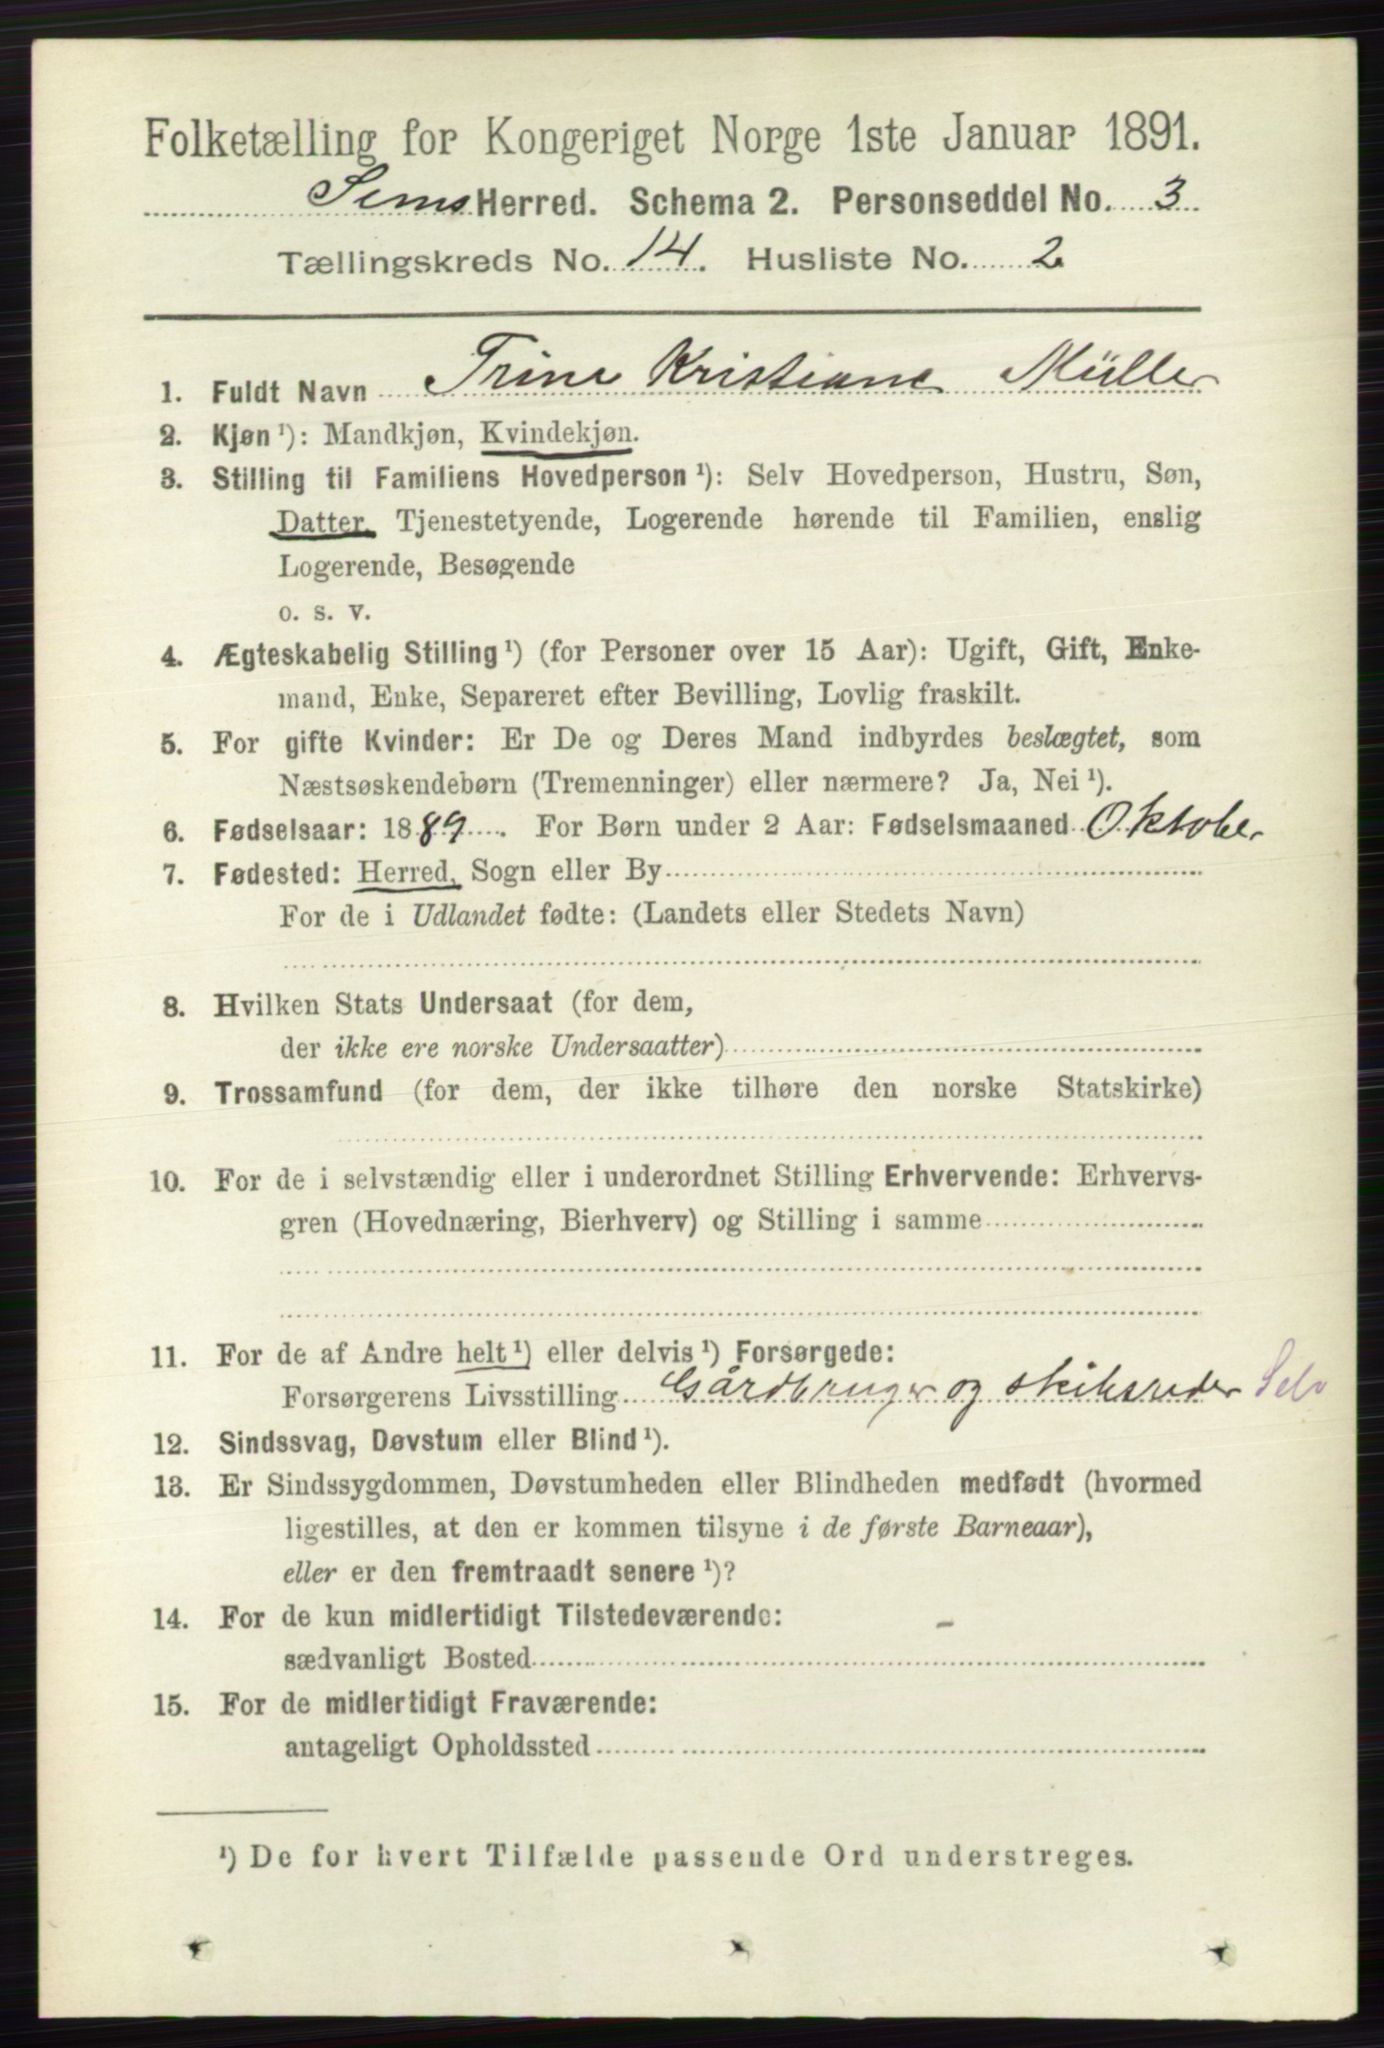 Folketælling for Kongeriget Norge 1ste Januar 1891.
Sems Herred. Schema 2. Personseddel No. 3
Tællingskreds No. 14. Husliste No. 2
1. Fuldt Navn Trine Kristiane Müller
2. Kjøn ¹): Mandkjøn, Kvindekjøn.
3. Stilling til Familiens Hovedperson ¹): Selv Hovedperson, Hustru, Søn,
Datter, Tjenestetyende, Logerende hørende til Familien, enslig
Logerende, Besøgende
o. s. v.
4. Ægteskabelig Stilling ¹) (for Personer over 15 Aar): Ugift, Gift, Enke-
mand, Enke, Separeret efter Bevilling, Lovlig fraskilt.
5. For gifte Kvinder: Er De og Deres Mand indbyrdes beslægtet, som
Næstsøskendebørn (Tremenninger) eller nærmere? Ja, Nei ¹).
6. Fødselsaar: 1889. For Børn under 2 Aar: Fødselsmaaned Oktober
7. Fødested: Herred, Sogn eller By
For de i Udlandet fødte: (Landets eller Stedets Navn)
8. Hvilken Stats Undersaat (for dem,
der ikke ere norske Undersaatter)
9. Trossamfund (for dem, der ikke tilhøre den norske Statskirke)
10. For de i selvstændig eller i underordnet Stilling Erhvervende: Erhvervs-
gren (Hovednæring, Bierhverv) og Stilling i samme
11. For de af Andre helt ¹) eller delvis ¹) Forsørgede:
Forsørgerens Livsstilling Gårdbruger og skibsreder Selv
12. Sindssvag, Døvstum eller Blind ¹).
13. Er Sindssygdommen, Døvstumheden eller Blindheden medfødt (hvormed
ligestilles, at den er kommen tilsyne i de første Barneaar),
eller er den fremtraadt senere ¹)?
14. For de kun midlertidigt Tilstedeværende:
sædvanligt Bosted
15. For de midlertidigt Fraværende:
antageligt Opholdssted
¹) De for hvert Tilfælde passende Ord understreges.